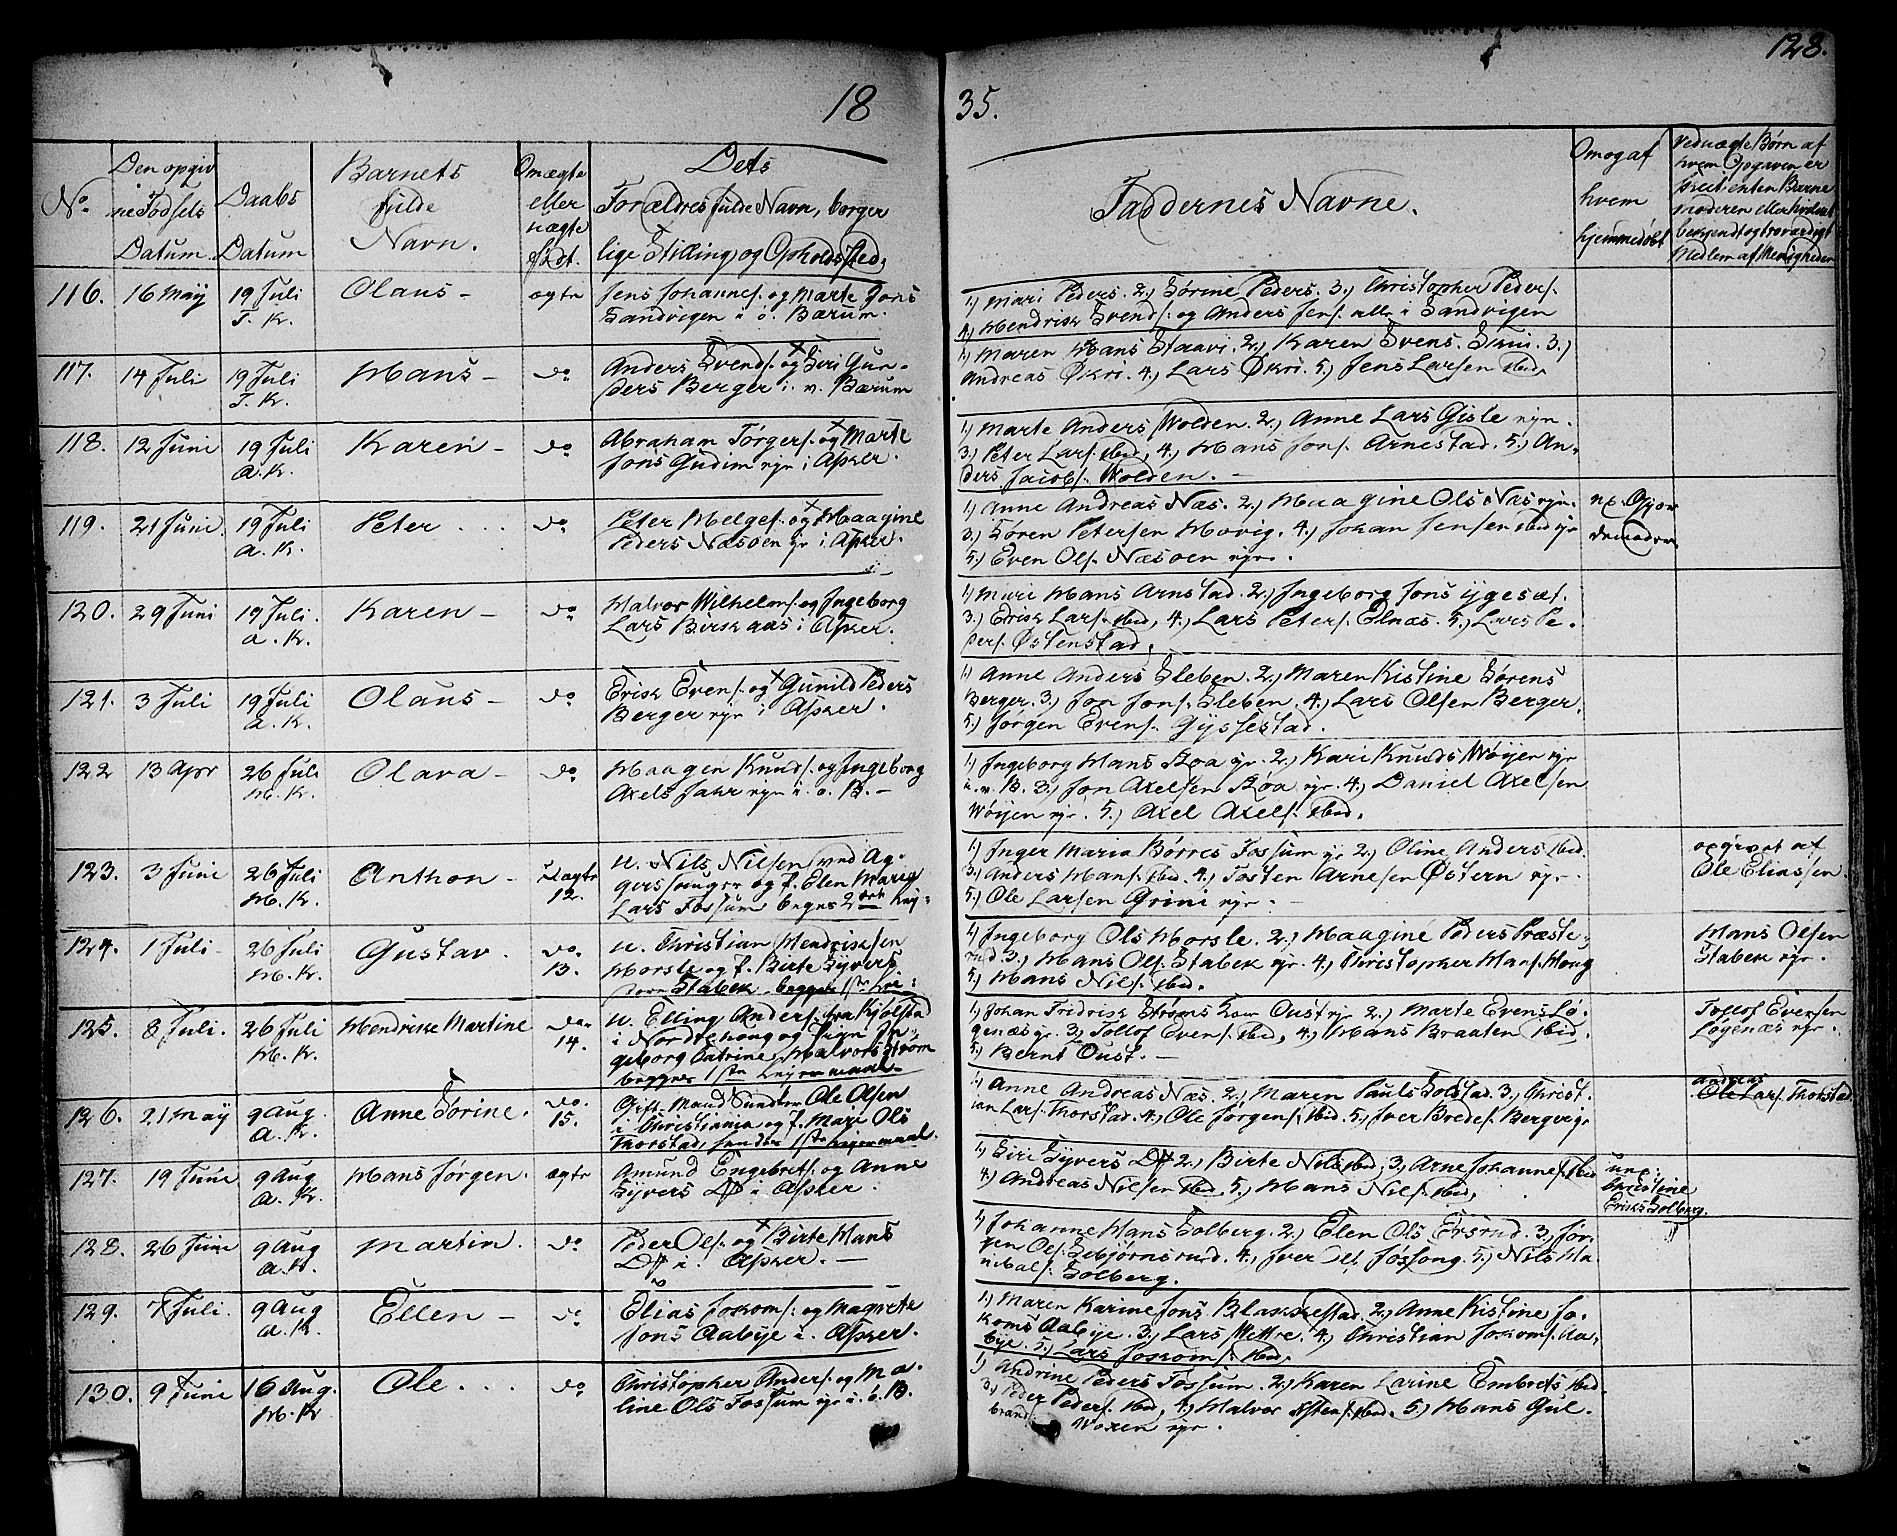 128.
18 35.
No
Den opgiv
ne Fødsels
Datum.
Daabs
Datum
Barnets
fulde
Navn.
Om ægte
eller
uægte
født.
Dets
Forældres fulde Navn, borger
lige Stilling og Opholdssted.
Faddernes Navne.
Om og af
hvem
hjemmedøbt
Ved uægte Børn af
hvem Opgiven er
skeet enten Barne
moderen eller hvilket
bekjendt og troværdigt
Medlem af Menigheden
116. 16 May 19 Juli Olaus - ægte Jens Johannes. og Marte Jons
T. K. Sandvigen i ø. Bærum.
1.) Mari Peders. 2.) Sørine Peders. 3.) Christopher Peders.
4.) Hendrisk Svends. og Anders Jens. alle i Sandvigen
117. 14 Juli 19 Juli Hans - do Anders Svends. og Siri Gun-
T. K. ders Berger i v. Bærum
1.) Maren Hans Staavi. 2.) Karen Svens. Skui. 3.)
Andreas Økri. 4.) Lars Økri. 5.) Jens Larsen ibid.
118. 12 Juni 19 Juli Karen - do Abraham Törgers. og Marte
A. K. Jons Gudim eje i Asker.
1.) Marte Anders Wolden. 2.) Anne Lars Gisle eje.
3.) Peter Lars. ibid, 4.) Hans Jons. Arnestad. 5.) An-
ders Jacobs. Wolden. -
119. 21 Juni 19 Juli Peter . . . do Peter Helges. og Haagine
A. K. Peders Næsøen eje i Asker.
1.) Anne Andreas Næs. 2.) Haagine Ols Næs eje.
3.) Sören Petersen Hovig. 4.) Johan Jensen ibid eje
5.) Even Ols. Næsøen eje.
120. 29 Juni 19 Juli. Karen - do Halvor Wilhelms. og Ingeborg
A. K. Lars Birskaas i Asker.
1.) Mari Hans Arnstad. 2.) Ingeborg Jons
3.) Erisk Lars. ibid, 4.) Lars Peters. Elnæs. 5.) Lars Pe-
ders. Østenstad.
121. 3 Juli 19 Juli Olaus - do Erisk Evens. og Gunild Peders
A. K. Berger eje i Asker.
1.) Anne Anders Sleben. 2.) Maren Kistine Sörens
Berger. 3.) Jon Jons. Sleben. 4.) Lars Olsen Berger.
5.) Jørgen Evens. Gyssestad.
122 13 Apr 26 Juli Olava - do Haagen Knuds. og Ingeborg
H. K. Axels Jahr eje i ø. B. -
1.) Ingeborg Hans Roa eje. 2.) Kari Knuds Wøyen eje
i v. B. 3.) Jon Axelsen Roa eje. 4.) Daniel Axelsen
Wøyen eje. 5.) Axel Axels. ibid.
123. 3 Juni 26 Juli Anthon - uægte u. Nils Nilsen ved Ag-
H. K. 12. og p. Elen Marie
Lars Fossum begges 2det Lej-
1.) Inger Maria Börres Fossum eje 2.) Oline Anders ibid.
3.) Anders Hans. ibid. 4.) Tosten Arnesen Østern eje.
5.) Ole Larsen Grini eje.
opgivet af
Ole Eliassen
124. 1 Juli. 26 Juli Gustav. do. u. Christian Hendrisksen
H. K. 13. Horsle og p. Birte Syvers.
Stabek begges 1ste Lei-
1.) Ingeborg Ols Horsle. 2.) Haagine Peders Præste-
rud 3.) Hans Ols. Stabek eje. 4.) Christopher Hans. Houg
5.) Hans Nils. ibid.
Hans Olsen
Stabek eje.
125. 8 Juli. 26 Juli Hendrikke Martine do. u. Elling Anders. fra Kjölstad
H. K. 14. i Nordrehoug og Pigen In-
geborg Catrine Halvors Ström
begges 1ste Leiermaal.
1.) Johan Fridrisk Ströms Oust eje 2.) Marte Evens Lø-
genæs eje. 3.) Tollof Evens. ibid, 4.) Hans Braaten ibid.
5.) Bernt Oust. -
Tollof Evensen
Løgenæs eje.
126. 21 May 9 Aug. Anne Sörine. do. Gift Mand Ole Olsen
A. K. 15. i Christiania og p. Mari Ols
Thorstad, hendes 1ste Leiermaal.
1.) Anne Andreas Næs. 2.) Maren Pauls Solstad. 3.) Christ-
ian Lars. Thorstad. 4.) Ole Jørgens. ibid. 5.) Iver Bredes. Bergvig.
Andreas
Ole Lars. Thorstad.
127. 19 Juni 9 Aug Hans Jørgen. ægte Amund Engebrets. og Anne
A. K. Syvers i Asker.
1.) Siri Syvers 2.) Birte Nils ibid, 3.) Arne Johannes. ibid
4.) Andreas Nilsen ibid, 5.) Hans Nils. ibid,
Christine
Eriks Solberg.
128. 26 Juni 9 Aug Martin. do Peder Ols. og Birte Hans
A. K. i Asker. -
1.) Johanne Hans Solberg. 2.) Elen Ols Ersrud. 3.) Jør-
gen Ols. Sebjørnsrud. 4.) Iver Ols. 5.) Nils Ha-
nibals. Solberg.
129. 7 Juli. 9 Aug Ellen - do Elias Jokoms. og Magrete
A. K. Jons Aabye i Asker.
1.) Maren Karine Jons Blakkestad. 2.) Anne Kistine Jo-
koms Aabye. 3.) Lars Wettre. 4.) Christian Jokoms. Aa-
bye. 5.) Lars Jokoms. ibid.
130. 9 Juni 16 Aug. Ole . . . do Christopher Anders. og Ma-
H. K. line Ols Fossum eje i ø. B.
1.) Andrine Peders Fossum. 2.) Karen Larine Embrets ibid.
3.) Peder Peders. ibid, 4.) Halvor Østens. ibid. 5.) Hans Gul-
brands. Woxen eje.